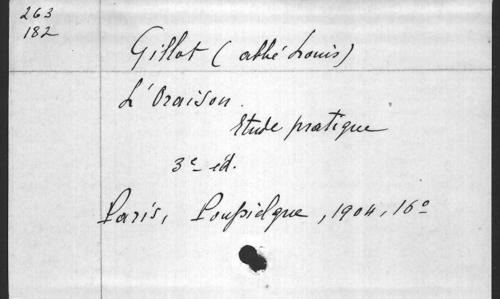 263
182
Gillot (abbé Louis)
L'Oraison.
Etude pratique
3e éd.
Paris, Poussielgue, 1904, 16o